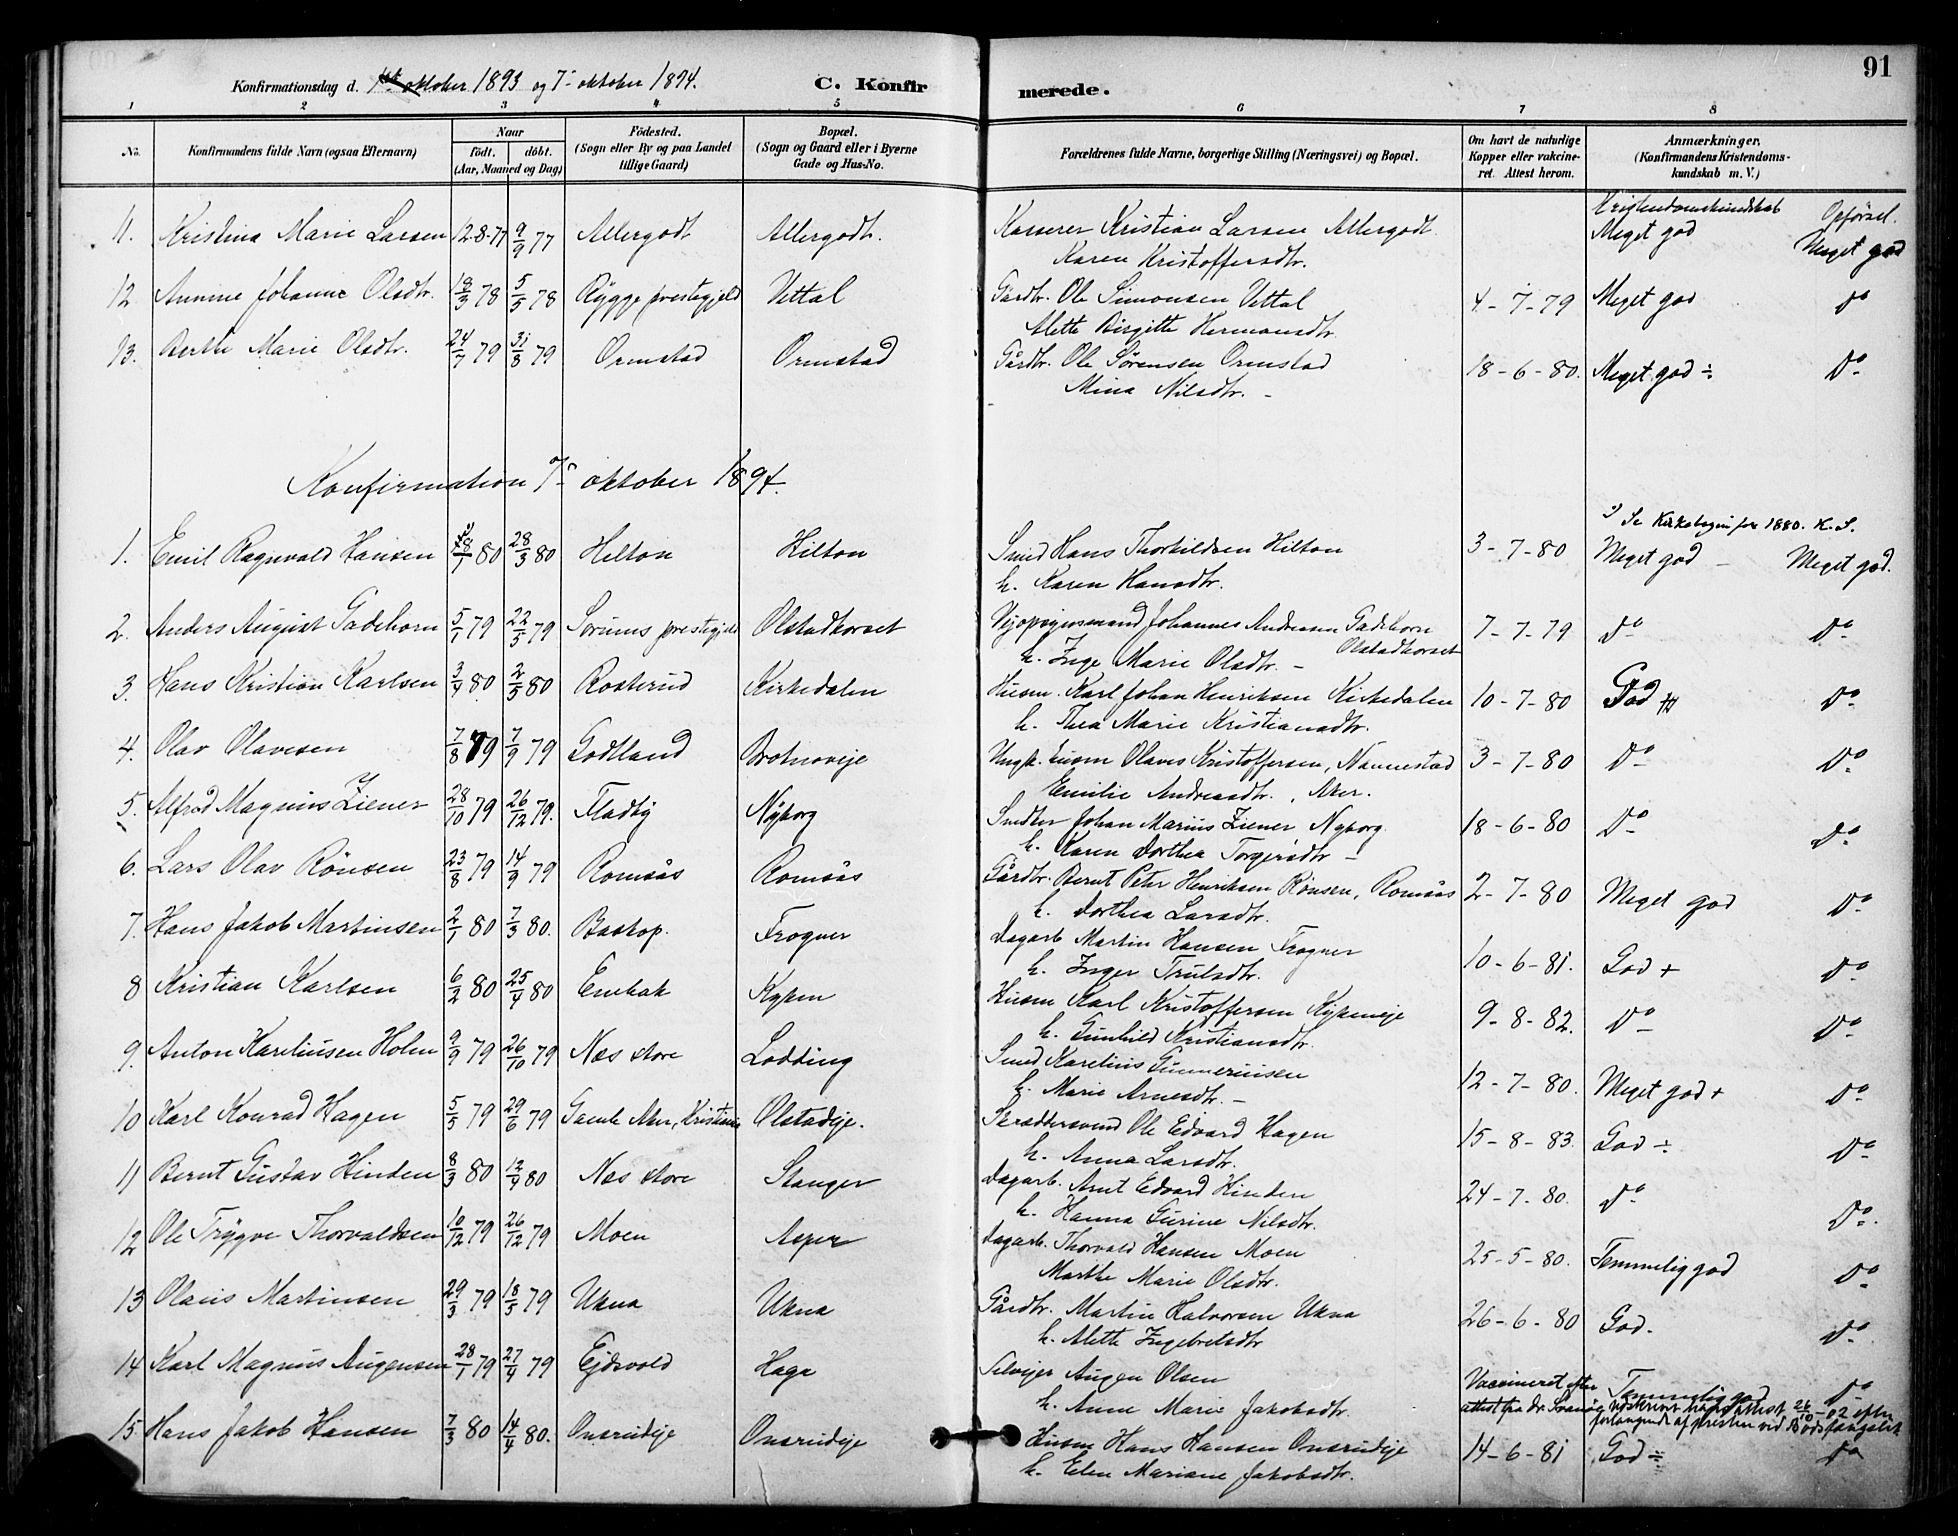 91
Konfirmationsdag d. 1ste oktober 1893 og 7de oktober 1894. C. Konfirmerede.
1 2 3 4 5 6 7 8
No. Konfirmandens fulde Navn (ogsaa Efternavn) Naar født. døbt. (Aar, Maaned og Dag) Fødested. (Sogn eller By og paa Landet tillige Gaard) Bopæl. (Sogn og Gaard eller i Byerne Gade og Hus-No. Forældrenes fulde Navne, borgerlige Stilling (Næringsvei) og Bopæl. Om havt de naturlige Kopper eller vakcineret. Attest herom. Anmærkninger. (Konfirmandens Kristendomskundskab m. V.)
Kristendomskundskab Opførsel.
11. Kristina Marie Larsen 12-8-77 9/9 77 Allergodt Allergodt. Kasserer Kristian Larsen Allergodt Meget god Meget god
Karen Kristoffersdtr.
12 Annine Johanne Olsdtr. 18/3 78 5/5 78 Rygge prestegjeld Vettal Gårdbr. Ole Simonsen Vettal 4-7-79 Meget god Do
Alette Birgitte Hermansdtr.
13. Berthe Marie Olsdtr. 24/7 79 31/8 79 Ormstad Ormstad Gårdbr. Ole Sørensen Ormstad 18-6-80. Meget god ÷ Do
Mina Nilsdtr. -
Konfirmation 7de oktober 1894.
Se Kirkebogen for 1880. K. S.
1. Emil Ragnvald Hansen 80 28/3 80 Hilton Hilton Smed Hans Thorkildsen Hilton 3-7-80 Meget god - Meget god.
h. Karen Hansdtr.
2. Anders August Gadehorn 5/1 79 22/5 79 Sørums prestegjeld Olstadkorset Johannes Andersen Gadehorn Olstadkorset 7-7-79 Do Do
h. Inge Marie Olsdtr. -
3. Hans Kristian Karlsen 3/4 80 2/5 80 Rosterud Kirkedalen Husm. Karl Johan Henriksen Kirkedalen 10-7-80 God Do
h. Thea Marie Kristiansdtr.
4. Olav Olavesen 7/8 79 7/9 79 Godtland Brotnoveje Ungk. Olaves Kristoffersen, Nannestad 3-7-80 Do Do
Emilie Andreasdtr., Aker.
5. Alfred Magnus Ziener 28/10 79 26/12 79. Fladby Nyborg Johan Marius Ziener Nyborg. 18-6-80 Do Do
h. Karen Dorthea Torgersdtr -
6. Lars Olav Rønsen 23/8 79 14/9 79 Romsås Romsås Gårdbr. Bernt Peter Henriksen Rønsen, Romsås 2-7-80 Meget god Do
h. Dorthea Larsdtr.
7. Hans Jakob Martinsen 2/1 80 7/3 80. Baskop. Frogner Dagarb. Martin Hansen Frogner 10-6-81. God + Do
h. Inger Trulsdtr.
8 Kristian Karlsen 6/2 80 25/4 80 Embak Kyken Husm Karl Kristoffersen Kykeneje 9-8-82. Do Do
h. Gunhild Kristiansdtr.
9. Anton Kareliusen Holm 9/9 79 26/10 79 Nes store Lodding Smed Karelius Gunneriusen 12-7-80. Meget god + Do
h. Marie Arnesdtr. -
10 Karl Konrad Hagen 5/5 79 29/6 79 Gamle Aker, Kristiania Olstadeje. Skræddersvend Ole Edvard Hagen 15-8-83. God ÷ Do
h. Anna Larsdtr.
11 Bernt Gustav Hinden 8/3 80 12/4 80 Nes store Stanger Dagarb. Amt Edvard Hinden 24-7-80. Do Do
h. Hanna Gurine Nilsdtr.
12 Ole Trygve Thorvaldsen 10/12 79 26/12 79 Moen Asper Dagarb. Thorvald Hansen Moen 25-5-80. Temmelig god Do
Marthe Marie Olsdtr.
13 Olaus Martinsen 29/3 79 18/5 79 Ukna Ukna Gårdbr. Martin Halvorsen Ukna 26-6-80 God. Do
h. Alette Ingebretsdtr
14 Karl Magnus Augensen 28/1 79 27/4 79 Ejdsvold Haga Selvejer Augen Olsen Vaccineret efter attest fra dr. Temmelig god Do
h. Anne Marie Jakobsdtr. attest 26/10-02 efter
forlangende af presten ved Bodsfængslet
15. Hans Jakob Hansen 7/3 80 14/4 80. Onsrudeje Onsrudeje Husm Hans Hansen Onsrudeje 14-6-81 God ÷ Do
h. Elen Mariane Jakobsdtr.